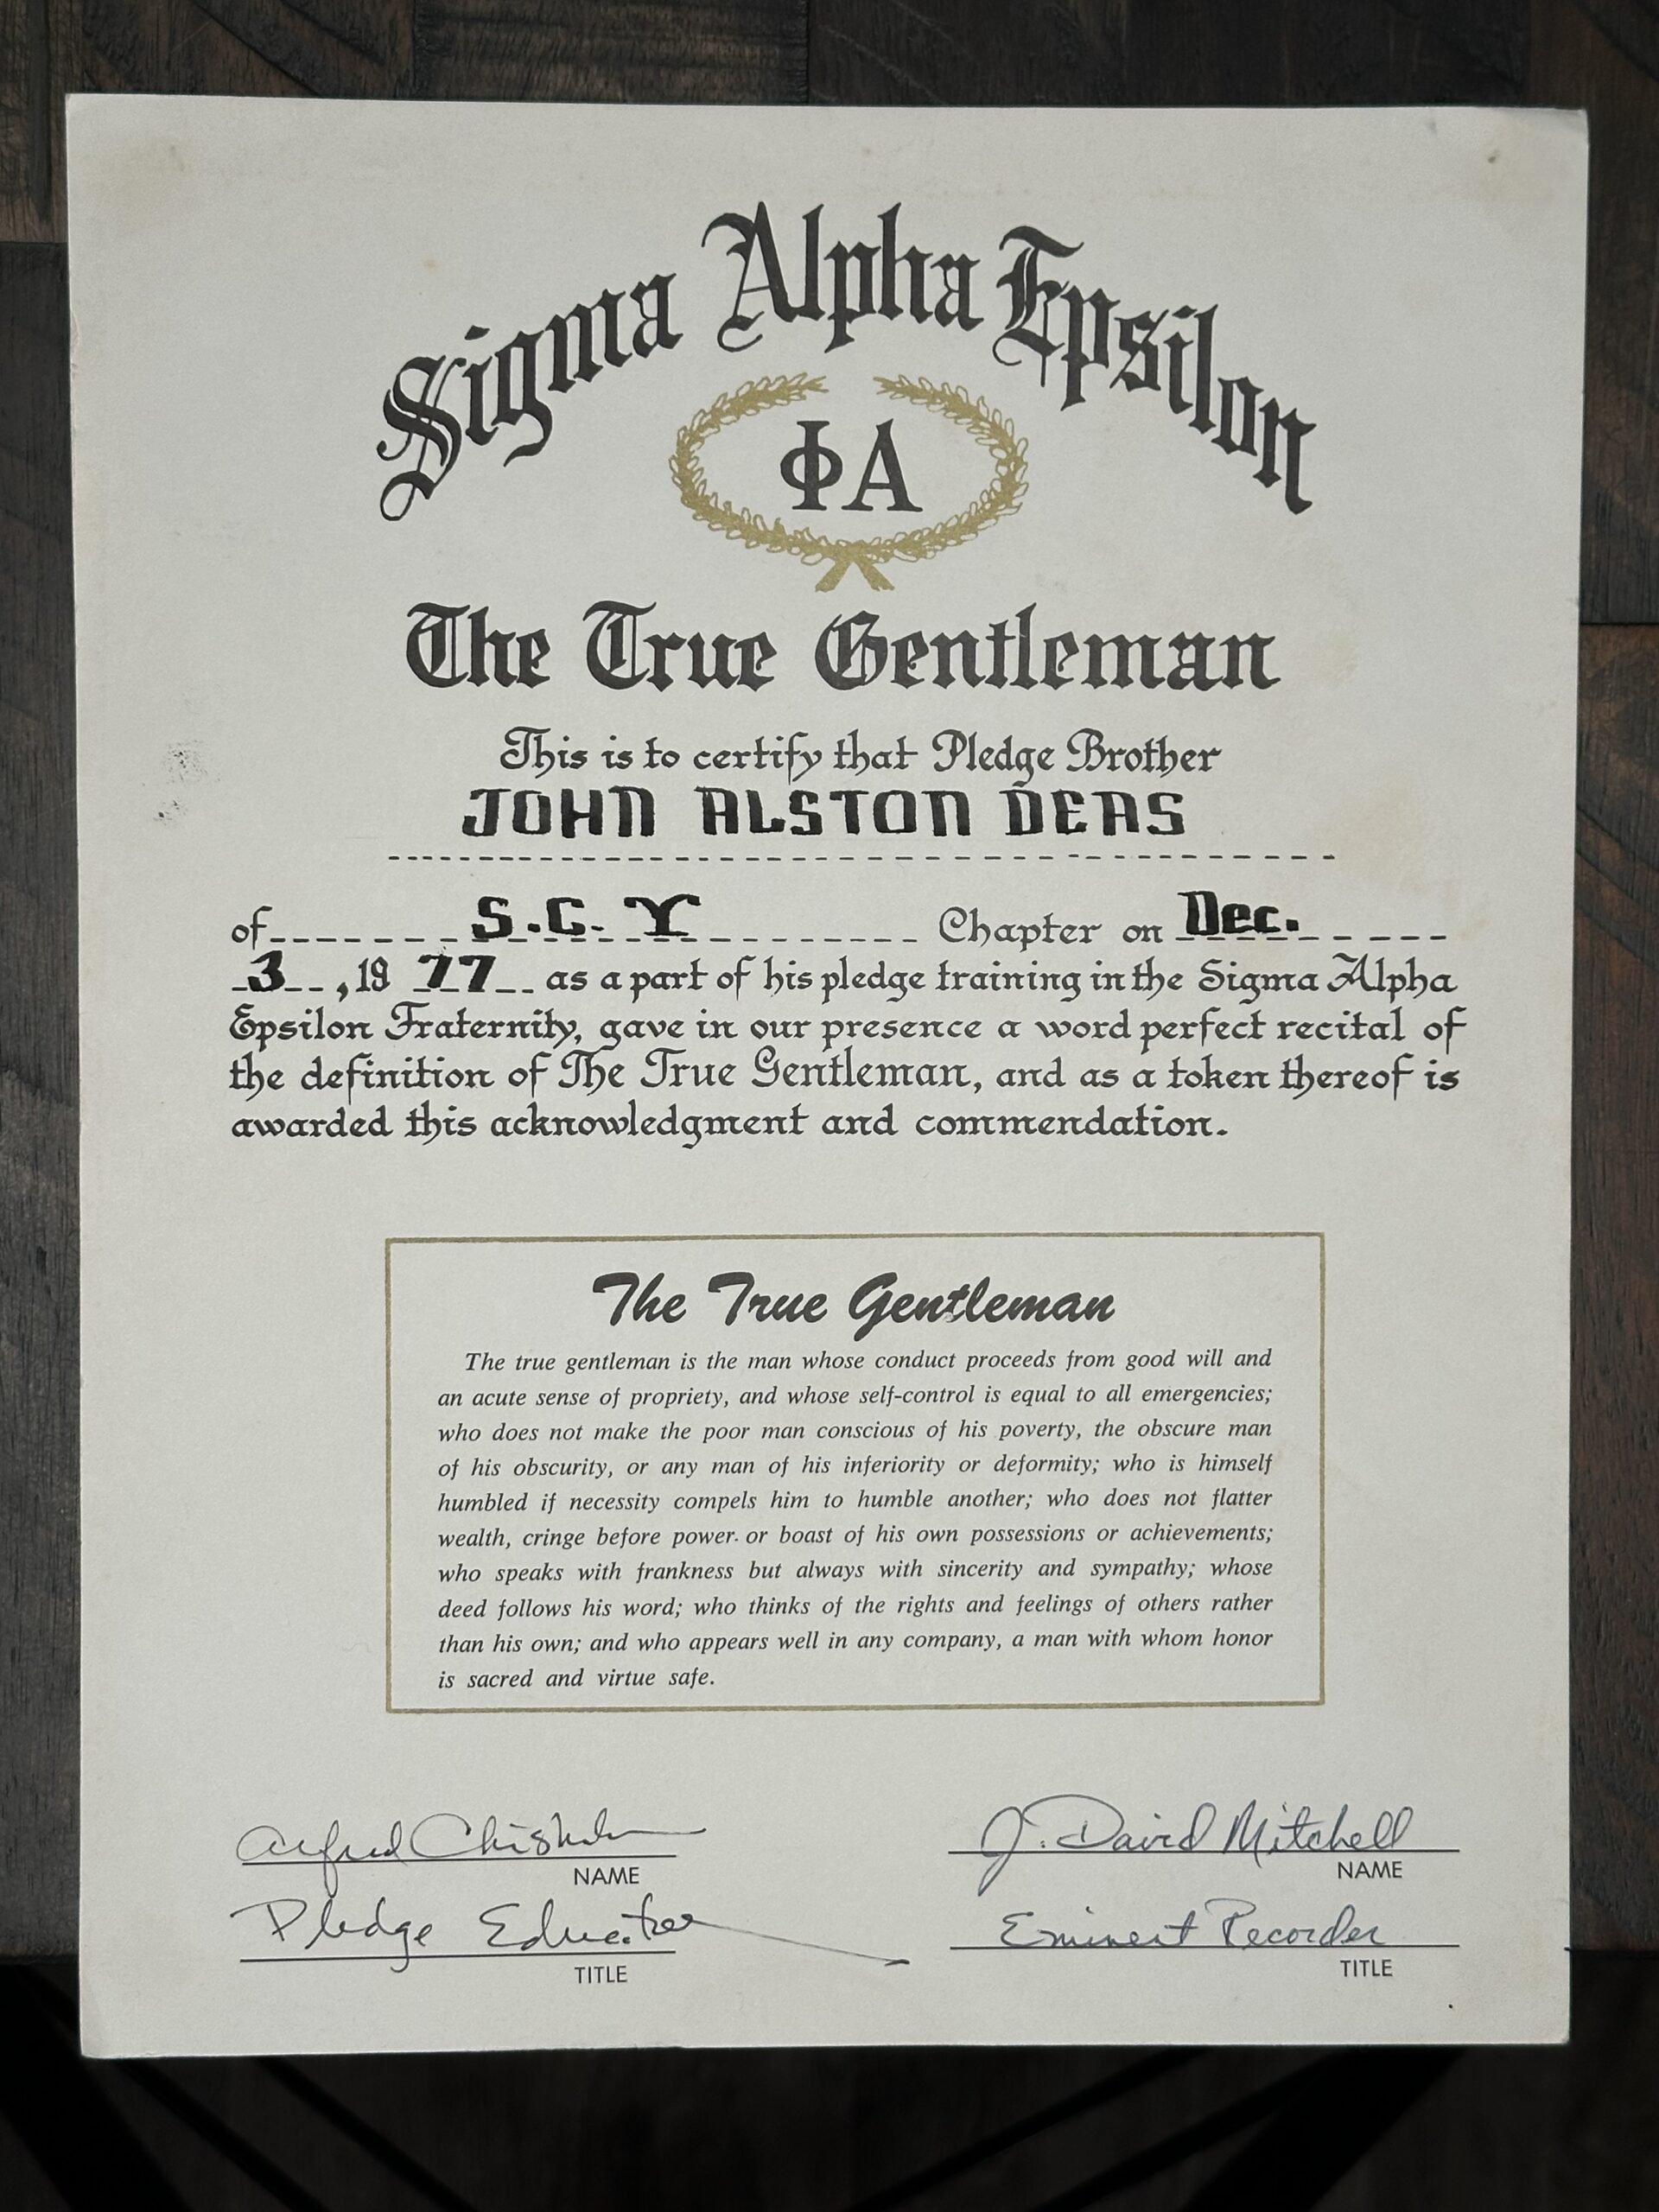 Sigma Alpha Epsilon
ΦΑ
The True Gentleman
This is to certify that Pledge Brother
JOHN ALSTON DEAS
of S.C. ϒ Chapter on Dec.
3, 1977 as a part of his pledge training in the Sigma Alpha
Epsilon Fraternity, gave in our presence a word perfect recital of
the definition of The True Gentleman, and as a token thereof is
awarded this acknowledgment and commendation.
The True Gentleman
The true gentleman is the man whose conduct proceeds from good will and
an acute sense of propriety, and whose self-control is equal to all emergencies;
who does not make the poor man conscious of his poverty, the obscure man
of his obscurity, or any man of his inferiority or deformity; who is himself
humbled if necessity compels him to humble another; who does not flatter
wealth, cringe before power. or boast of his own possessions or achievements;
who speaks with frankness but always with sincerity and sympathy; whose
deed follows his word; who thinks of the rights and feelings of others rather
than his own; and who appears well in any company, a man with whom honor
is sacred and virtue safe.
Alfred Chisholm
NAME
Pledge Educator
TITLE
J. David Mitchell
NAME
Eminent Recorder
TITLE